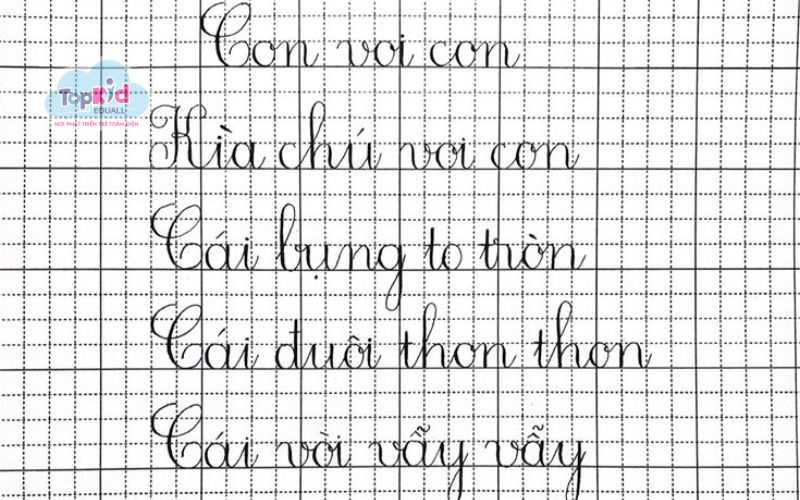 Con voi con
TopKid
EDUALL
NƠI PHÁT TRIỂN TRẺ TOÀN DIỆN
Kìa chú voi con
Cái bụng to tròn
Cái đuôi thon thon
Cái vòi vẫy vẫy